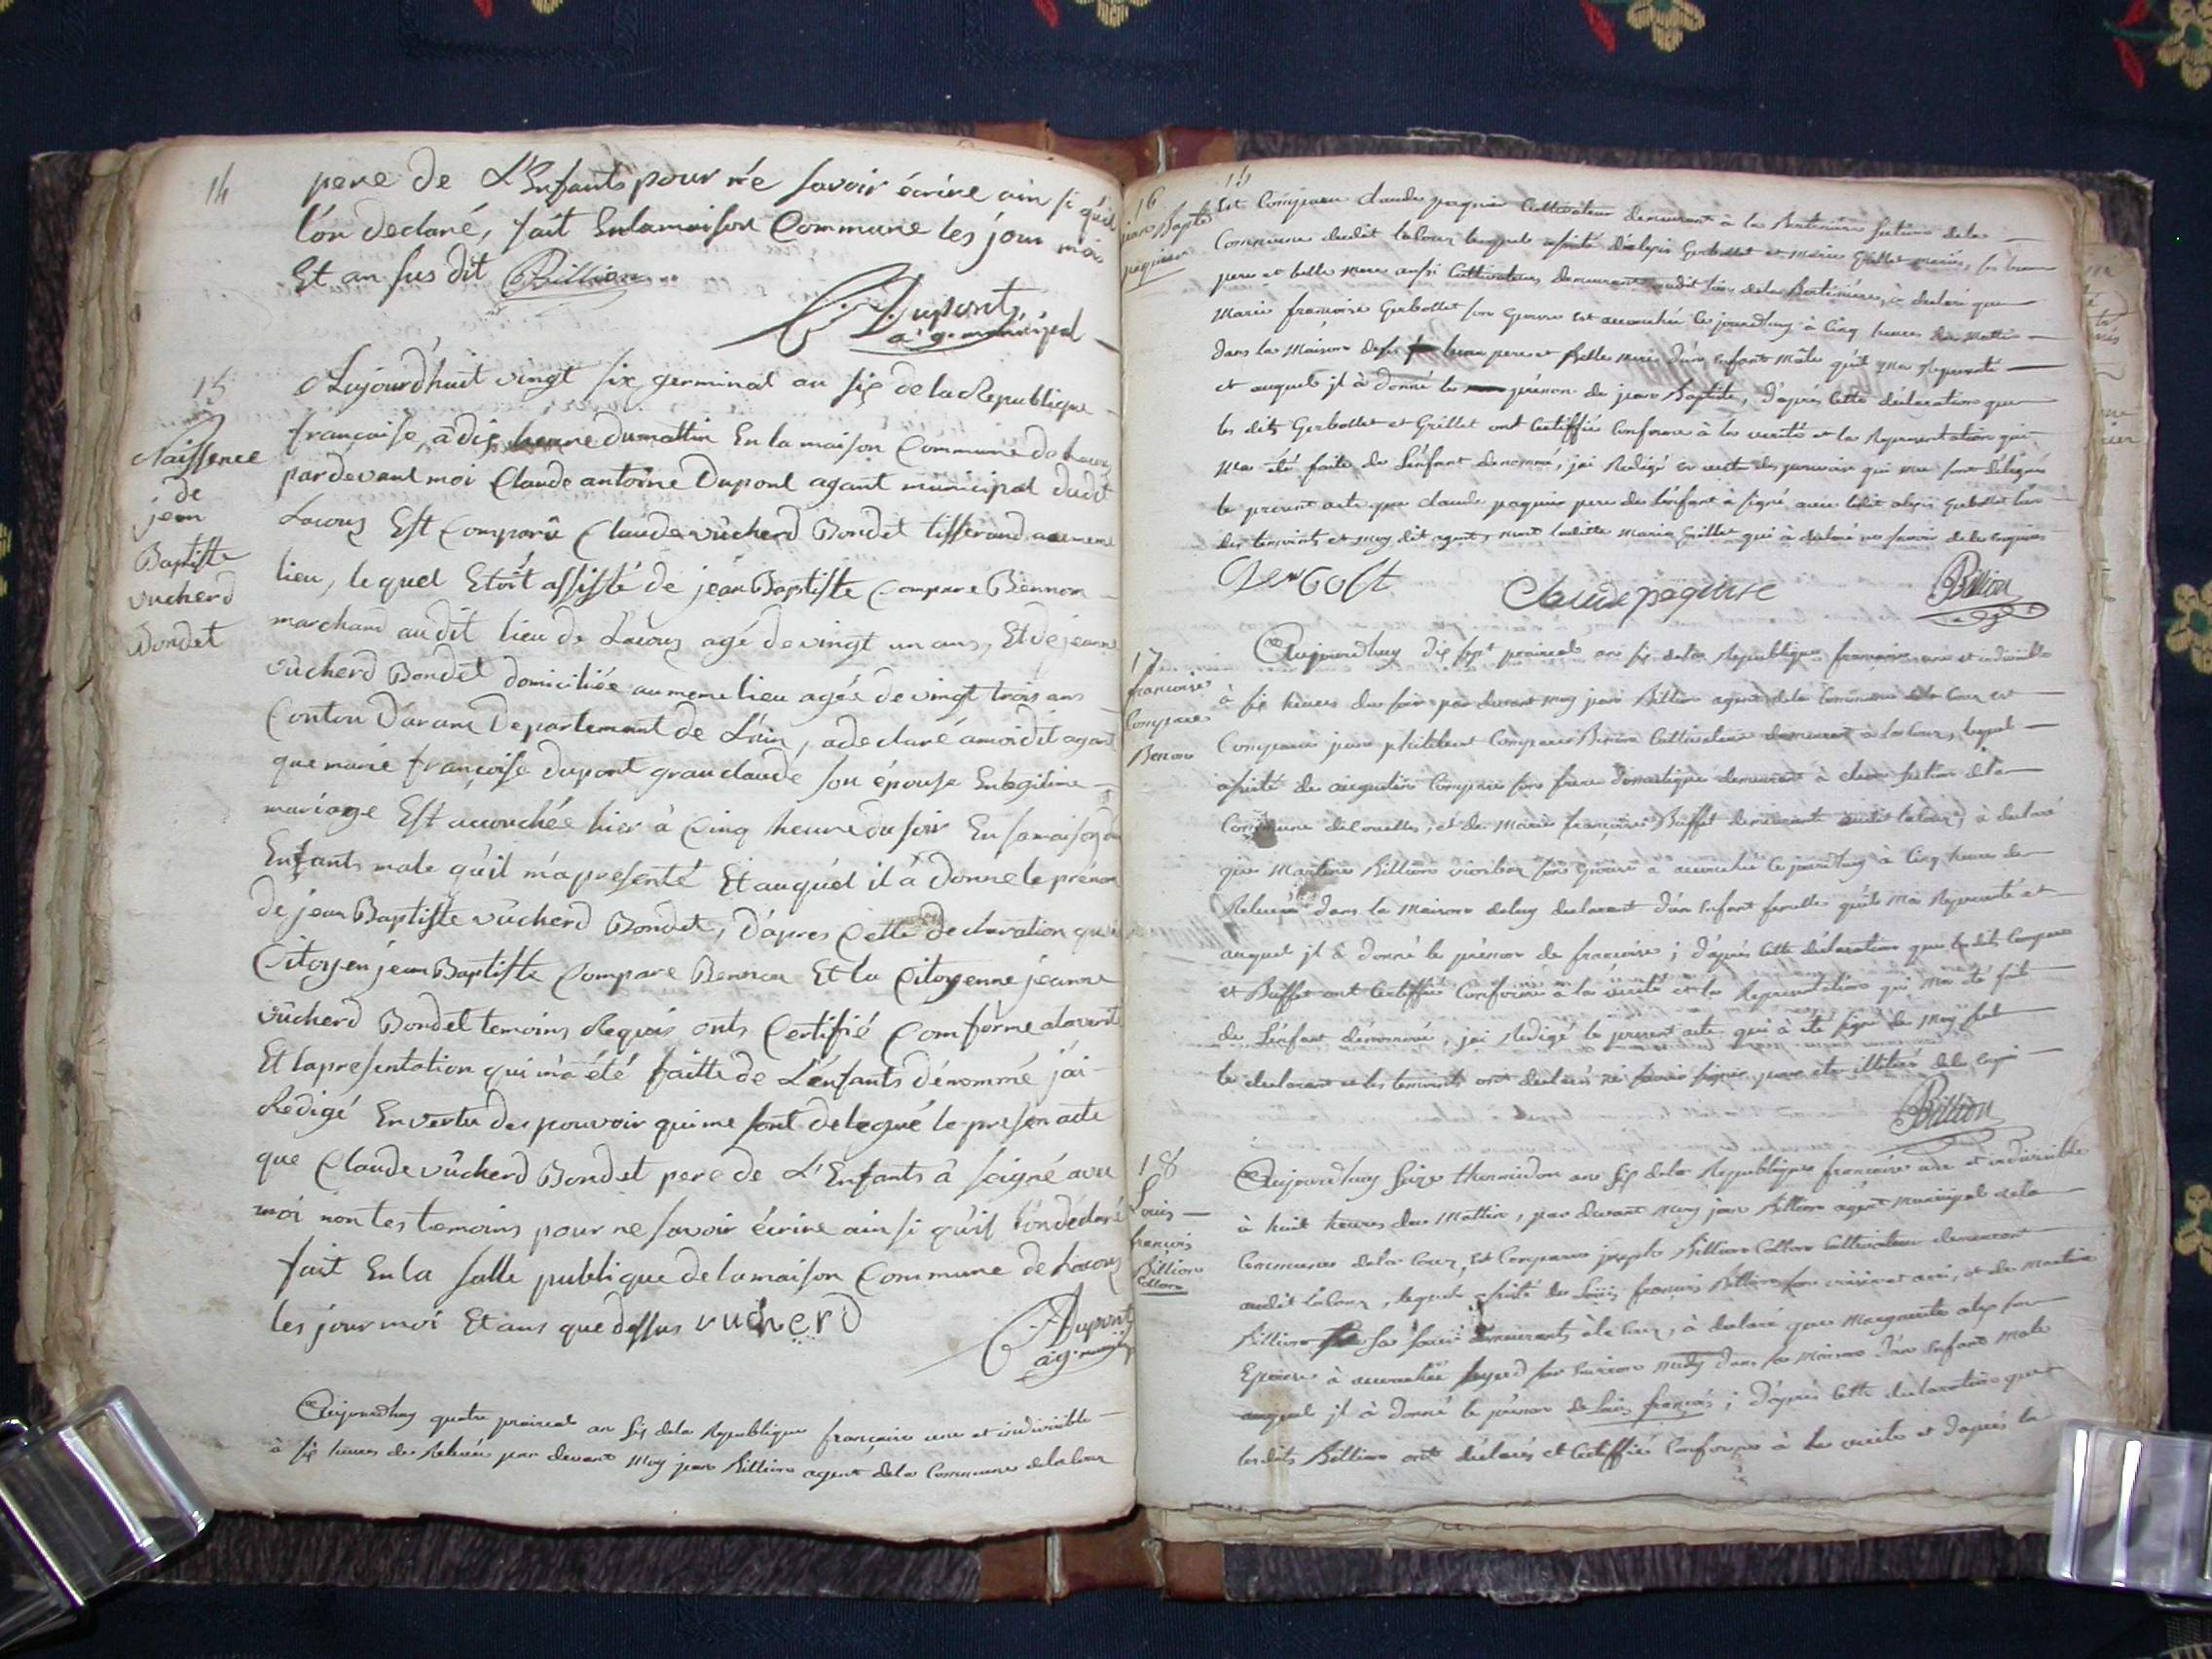 14
pere de L'Enfants pour ne savoir écrire ain si qu'il
l'on declaré, fait En la maison Commune les jour mois
Et an sus dit Billion
Dupont
ag. municipal
15
Naissence
de
jean
Baptiste
vucherd
Bondet
Aujourd'huit vingt six germinal an six de la Republique
française, à dix heure du mattin En la maison Commune de Lacoux
pardevant moi Claude antoine Dupont agant municipal dudit
Lacoux Est Comparü Claude vûcherd Bondet tisserand au meme
lieu, le quel Etoit assisté de jean Baptiste Compare Bennon
marchand au dit lieu de Lacoux agé de vingt un ans, Et de jeanne
vûcherd Bondet domiciliée au meme lieu agée de vingt trois ans
Conton D'arane Departement de L'ain, a declaré a moi dit agant
que marie françoise dupont grand claude son épouse En legitime
mariage Est acouchée hier à Cinq heure du soir En sa maison
Enfants male qu'il m'a presenté Et auquel il a Donne le prénom
de jean Baptiste vûcherd Bondet, D'apres Cette declaration que
Citoyen jean Baptiste Compare Bennon Et la Citoyenne jeanne
vûcherd Bondet temoins Requis onts Certifié Comforme a la verité
Et la presentation qui m'a été faitte de L'enfants dénommé j'ai
Redigé En vertu des pouvoir qui me sont delegué le presen acte
que Claude vûcherd Bondet pere de L'Enfants à seigné avec
moi non les temoins pour ne savoir écrire ain si qu'il l'on déclaré
fait En la salle publique de la maison Commune de Lacoux
les jour moi Et ans que dessus vucherd
Dupont
ag. municip
Aujourdhuy quatre prairial an six dela Republique française une et indivisible
à six heures de Relevée par devant moy jean Billion agent dela Commune delalcoux
15
16
jean Baptiste
paquier
Est Comparu claude paquier Cultivateur demeurant à la section dela
Commune dudit lalcoux lequel assisté d'alexis Gerbollet et Marie Grillet mariés, ses beau
pere et belle mere aussi Cultivateurs demeurant audit lieu dela à declaré que
Marie françoise Gerbollet son Epouse est accouchée ce jourdhuy à Cinq heures du Mattin
dans la Maison de ses beau pere et Belle mere d'un Enfant Mâle qu'il ma Representé
et auquel jl à donné le prénom de jean Baptiste, d'après cette déclaration que
les dits Gerbollet et Grillet ont Certiffié Conforme à la verité et la Representation qui
ma été faite de L'enfant denommé, jai Redigé en vertu des pouvoir qui me sont délégués
le present acte que claude paquier pere de L'enfant à signé avec ledit alexis Gerbollet l'un
des temoints et moy dit agent, non ladite Marie Grillet qui à declaré ne savoir de ce enquise
Gerbolt Claude paquier Billion
17
françoise
Compare
Benon
Aujourdhuy dix sept prairial an six dela Republique françoise une et indivisible
à six heures du soir par devant moy jean Billion agent dela Commune dela Coux est
Comparu jean philibert Compare Benon Cultivateur demeurant à la Coux, lequel
assisté de augustin Compare son frere domestique demeurant à section de la
Commune et de Marie françoise Buffet demeurante audit lalcoux, à declaré
que Martine Billion son Epouse à accouchée ce jourdhuy à Cinq heures de
Relevée dans la Maison deluy declarant d'un Enfant femelle qu'il Ma Representé et
auquel jl à donné le prénom de françoise ; d'après cette déclaration que les dits Compare
et Buffet ont Certiffié Conforme à la verité et la Representation qui Ma été faite
de L'enfant dénommé, jai Redigé le present acte qui à été signé de Moy seul
le declarant et les temoints ont declarés ne savoir signer pour etre illitérés de ce enqui
Billion
18
Louis
françois
Billion
Collon
Aujourdhuy seize thermidor an six dela Republique française une et indivisible
à huit heures du Mattin, par devant moy jean Billion agent municipal dela
Commune dela Coux, est Comparu joseph Billion Collon Cultivateur demeurant
audit lalcoux, lequel assisté de Louis françois Billion son et de Martine
Billion sa demeurants à la Coux, à declaré que Marguerite alex son
Epouse à accouchée environ midy dans sa Maison d'un Enfant Male
auquel jl à donné le prénom de Louis françois ; d'après cette declaration que
lesdits Billion ont déclarés et Certiffié Conforme à la verité et d'après la